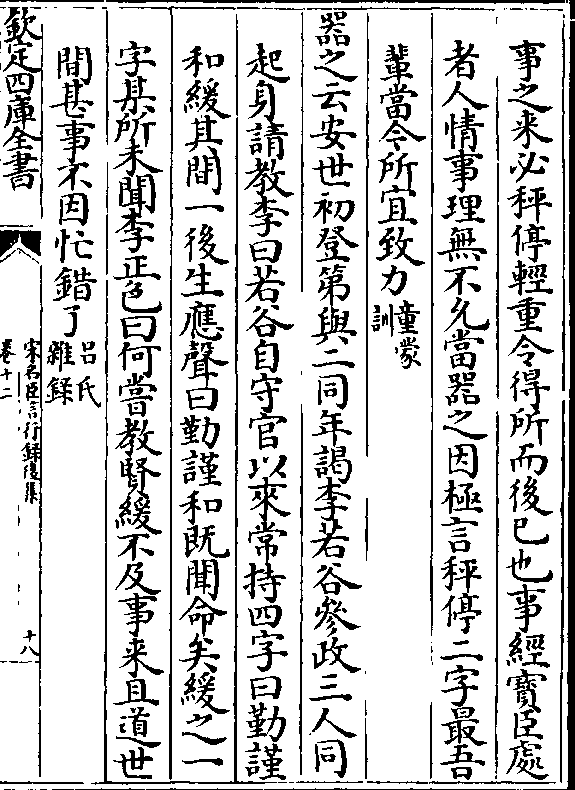 事之来必秤停輕重令得所而後已也事經寳臣處
者人情事理無不允當器之因極言秤停二字最吾
輩當令所宜致力童蒙訓
器之云安世初登第與二同年謁李若谷參政三人同
起身請教李曰若谷自守官以來常持四字曰勤謹
和緩其間一後生應聲曰勤謹和既聞命矣緩之一
字某所未聞李正色曰何嘗教賢緩不及事来且道世
間甚事不因忙錯了吕氏雜錄
欽定四庫全書
宋名臣言行録後集
卷十二
十八